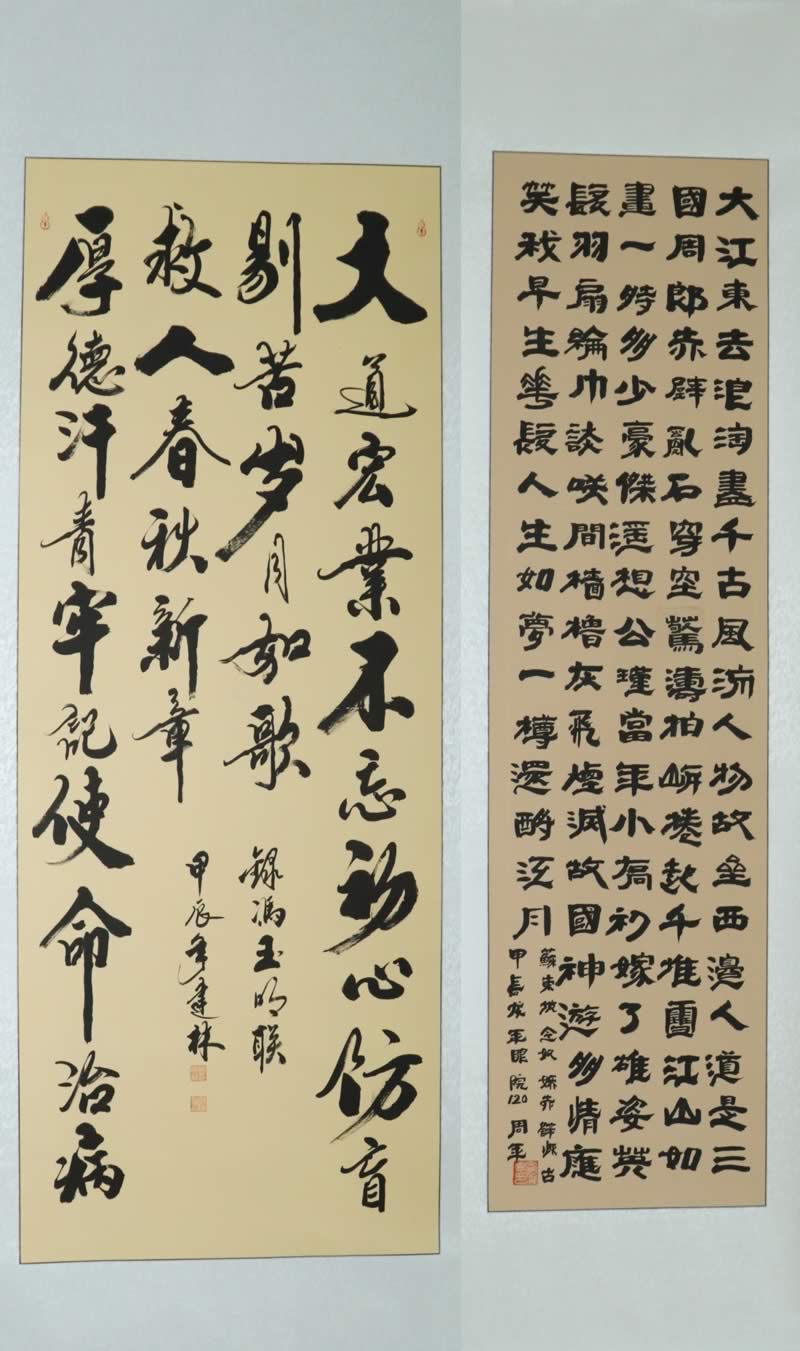 大道宏業不忘初心防盲
剔苦岁月如歌
厚德汗青牢记使命治病
救人春秋新章
錄馮玉明联
甲辰年建林
大江東去浪淘盡千古風流人物故壘西邊人道是三
國周郎赤壁亂石穿空驚濤拍岸捲起千堆雪江山如
畫一時多少豪傑遥想公瑾當年小喬初嫁了雄姿英
發羽扇綸巾談笑間檣櫓灰飛煙滅故國神遊多情應
笑我早生華髮人生如夢一樽還酹江月
蘇東坡念奴嬌赤壁懷古
甲辰眼院120周年